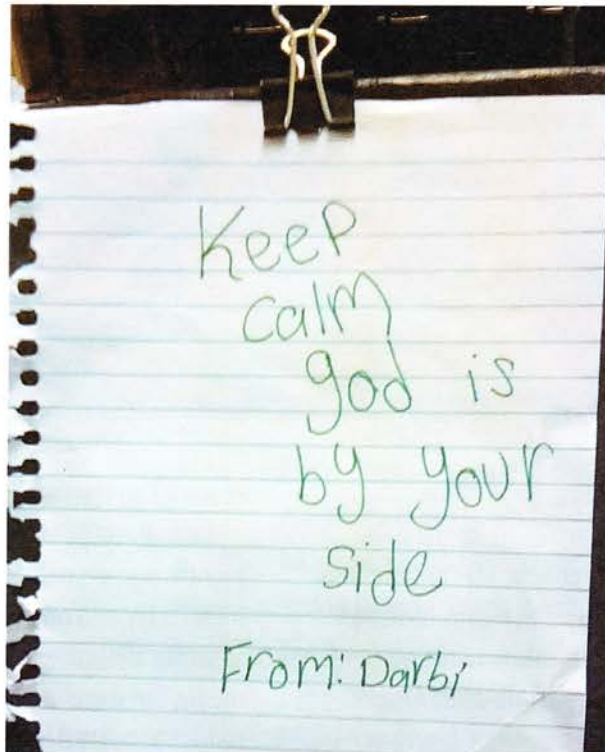 Keep
calm
god is
by your
side
From: Darbi